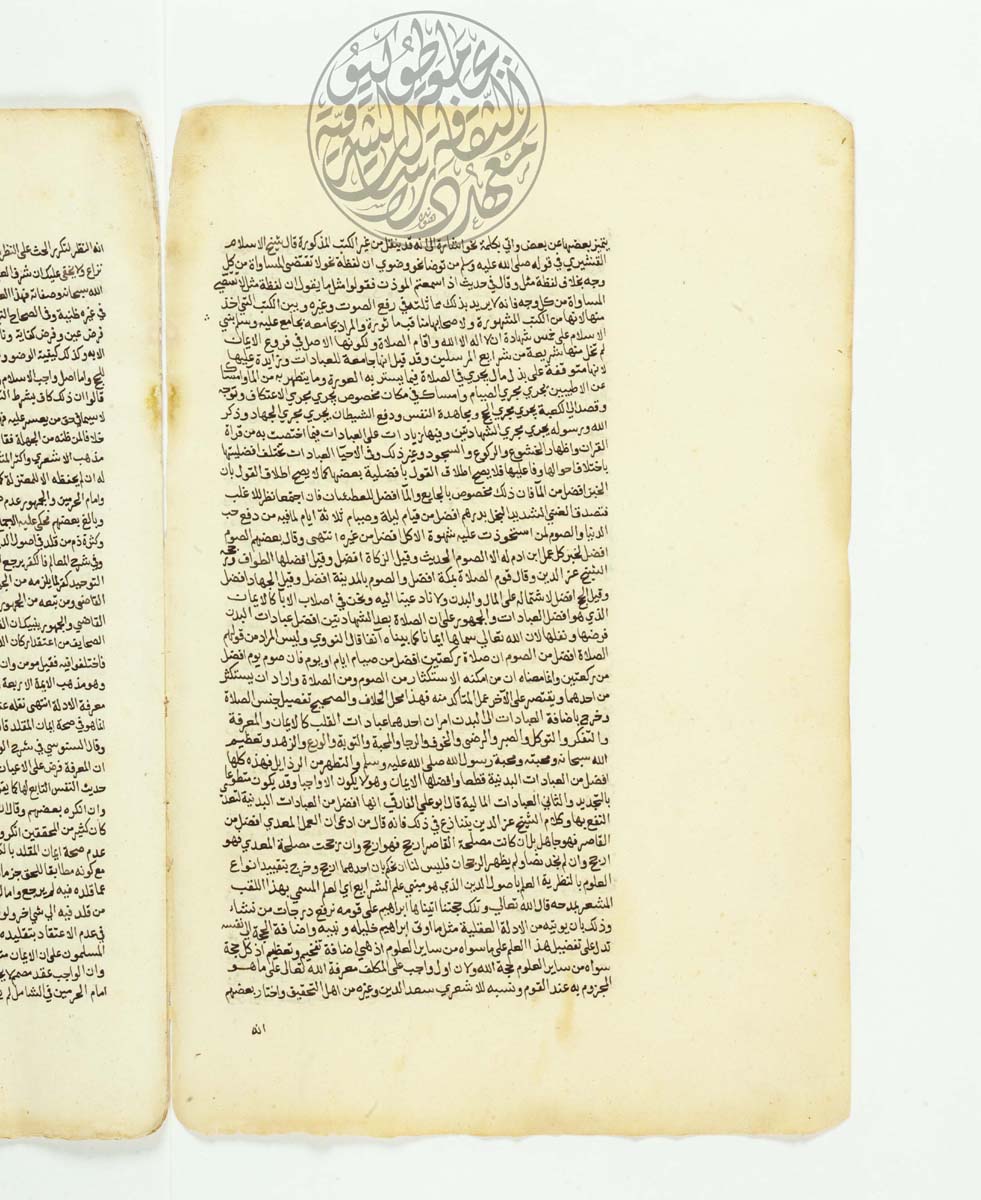 يتميز بعضها عن بعض واتي بكلمة نحو اشارة الى انه قد ينقل من غير الكتب المذكورة قال شيخ الاسلام
القشيري في قوله صلى الله عليه وسلم من توضا نحو وضوي ان لفظة نحو لا تقتضي المساواة من كل
وجه بخلاف لفظة مثل وقال في حديث اذ اسمعتم الموذن فقولوا مثل ما يقول ان لفظة مثل لا تقتضي
المساواة من كل وجه فانه لا يريد بذلك مماثلته في رفع الصوت وغيره وبين الكتب التي اخذ
منها لانها من الكتب المشهورة ولاصحابها مناقب ماثورة والمراد بجامعه بجامع عليه وسلم بني
الاسلام على خمس شهادة ان لا اله الا الله واقام الصلاة ولكونها الاصل في فروع الايمان
لم تخل منها شريعة من شرايع المرسلين وقد قيل انها جامعة للعبادات وزايدة عليها
لانها متوقفة على بذل مال يجري في الصلاة فيما يستر به العورة وما يتطهر به من الما وامساك
عن الاطيبين يجري مجري الصيام وامساك في مكان مخصوص يجري مجري الاعتكاف وتوجه
وقصد الي الكعبة يجري مجري الحج ومجاهدة النفس ودفع الشيطان يجري مجري الجهاد وذكر
الله ورسوله يجري مجري الشهادتين وفيها زيادات على العبادات فيما اختصت به من قراة
القران واظهار الخشوع والركوع والسجود وغير ذلك وفي الاحيا العبادات تختلف افضليتها
باختلاف احوالها وفاعليها فلا يصح اطلاق القول بافضلية بعضها كما لا يصح اطلاق القول بان
الخبز افضل من الما فان ذلك مخصوص بالجايع والما افضل للعطشان فان اجتمعا نظر للاغلب
فتصدق الغني الشديد البخل بدرهم افضل من قيام ليلة وصيام ثلاثة ايام لما فيه من دفع حب
الدنيا والصوم لمن استحوذت عليه شهوة الاكل افضل من غيره انتهى وقال بعضهم الصوم
افضل لخبر كل عمل ابن ادم له الا الصوم الحديث وقيل الزكاة افضل وقيل افضلها الطواف ورجحه
الشيخ عز الدين وقال قوم الصلاة بمكة افضل والصوم بالمدينة افضل وقيل الجهاد افضل
وقيل الحج افضل لاشتماله على المال والبدن ولانا دعينا اليه ونحن في اصلاب الابا كالايمان
الذي هو افضل العبادات والجمهور على ان الصلاة بعد الشهادتين افضل عبادات البدن
فرضها ونفلها لان الله تعالى سماها ايمانا كما بيناه آنفا قال النووي وليس المراد من قولهم
الصلاة افضل من الصوم ان صلاة ركعتين افضل من صيام ايام او يوم فان صوم يوم افضل
من ركعتين وانما معناه ان من امكنه الاستكثار من الصوم ومن الصلاة واراد ان يستكثر
من احدهما ويقتصر على الآخر على المتاكد منه فهذا محل الخلاف والصحيح تفضيل جنس الصلاة
وخرج باضافة العبادات الى البدن امران احدهما عبادات القلب كالايمان والمعرفة
والتفكر والتوكل والصبر والرضى والخوف والرجا والمحبة والتوبة والورع والزهد وتعظيم
الله سبحانه ومحبته ومحبة رسول الله صلى الله عليه وسلم والتطهر من الرذايل فهذه كلها
افضل من العبادات البدنية قطعا وافضلها الايمان وهو لا يكون الا واجبا وقد يكون متطوعا
بالتجديد والثاني العبادات المالية قال ابو علي الفارقي انها افضل من العبادات البدنية لتعدي
النفع بها وكلام الشيخ عز الدين ينازع في ذلك فانه قال من ادعى ان العمل المعدي افضل من
القاصر فهو جاهل بل ان كانت مصلحة القاصر ارجح فهو ارجح وان رجحت مصلحة المعدي فهو
ارجح وان لم نجد نصا ولم يظهر الرجحان فليس لنا ان نحكم بان احدهما ارجح وخرج بتقييد انواع
العلوم بالنظرية العلم باصول الدين الذي هو مبني علم الشرايع اي العلم المسمي بهذا اللقب
المشعر بمدحه قال الله تعالى وتلك حجتنا اتيناها ابراهيم على قومه نرفع درجات من نشاء
وذلك بان يوتيه من الادلة العقلية مثل ما اوتي ابراهيم خليله ونبيه واضافة الحجة الى نفسه
تدل على تفضيل هذا العلم على ما سواه من ساير العلوم اذ هي اضافة تفخيم وتعظيم اذ كل حجة
سواه من ساير العلوم حجة الله ولان اول واجب على المكلف معرفة الله تعالى على ما هو
المجزوم به عند القوم ونسبه للاشعري سعد الدين وغيره من اهل التحقيق واختار بعضهم
انه
انه النظر لتكرر الحث على النظر
نزاع ولا يخفى عليك ان شرف العلم
الله سبحانه وصفاته فهذا
في غيره ظنية وفي الصحاح
فرض عين وفرض كفاية
الا به وكذلك كيفية الوضو
للحج واما اصل واجب الاسلام
قالوا ان ذلك كاف بشرط
لا سيما في حق من يعسر عليه
خلافا لمن ظنه من الجهلة
مذهب الاشعري واكثر
له ان لم يحفظه الا للمعتزلة
وامام الحرمين والجمهور عدم
وبالغ بعضهم فحكى عليه
وكثرة ذم من قلد في اصول
وفي شرح المعالم
التوحيد كفر لما يلزمه من
القاضي ومن تبعه من الجمهور
القاضي والجمهور
الصحايف من اعتقد اركان
فاختلفوا فيه فقيل مومن وان
وهو مذهب الايمة الاربعة
معرفة الادلة انتهى نقله
انما هو في صحة ايمان المقلد
وقال السنوسي في شرح
ان المعرفة فرض على الاعيان
حديث النفس التابع لها
وان انكره بعضهم وقال
كان كثير من المحققين انكروا
عدم صحة ايمان المقلد
مع كونه مطابقا للحق
عما قلده فيه لم يرجع
من قلد فيه الي شي اخر
في عدم الاعتقاد بتقليده
المسلمون على ان الايمان
وان الواجب عقد مصمم
امام الحرمين في الشامل لم
جامعة طوكيو
معهد دراسات الثقافة الشرقية